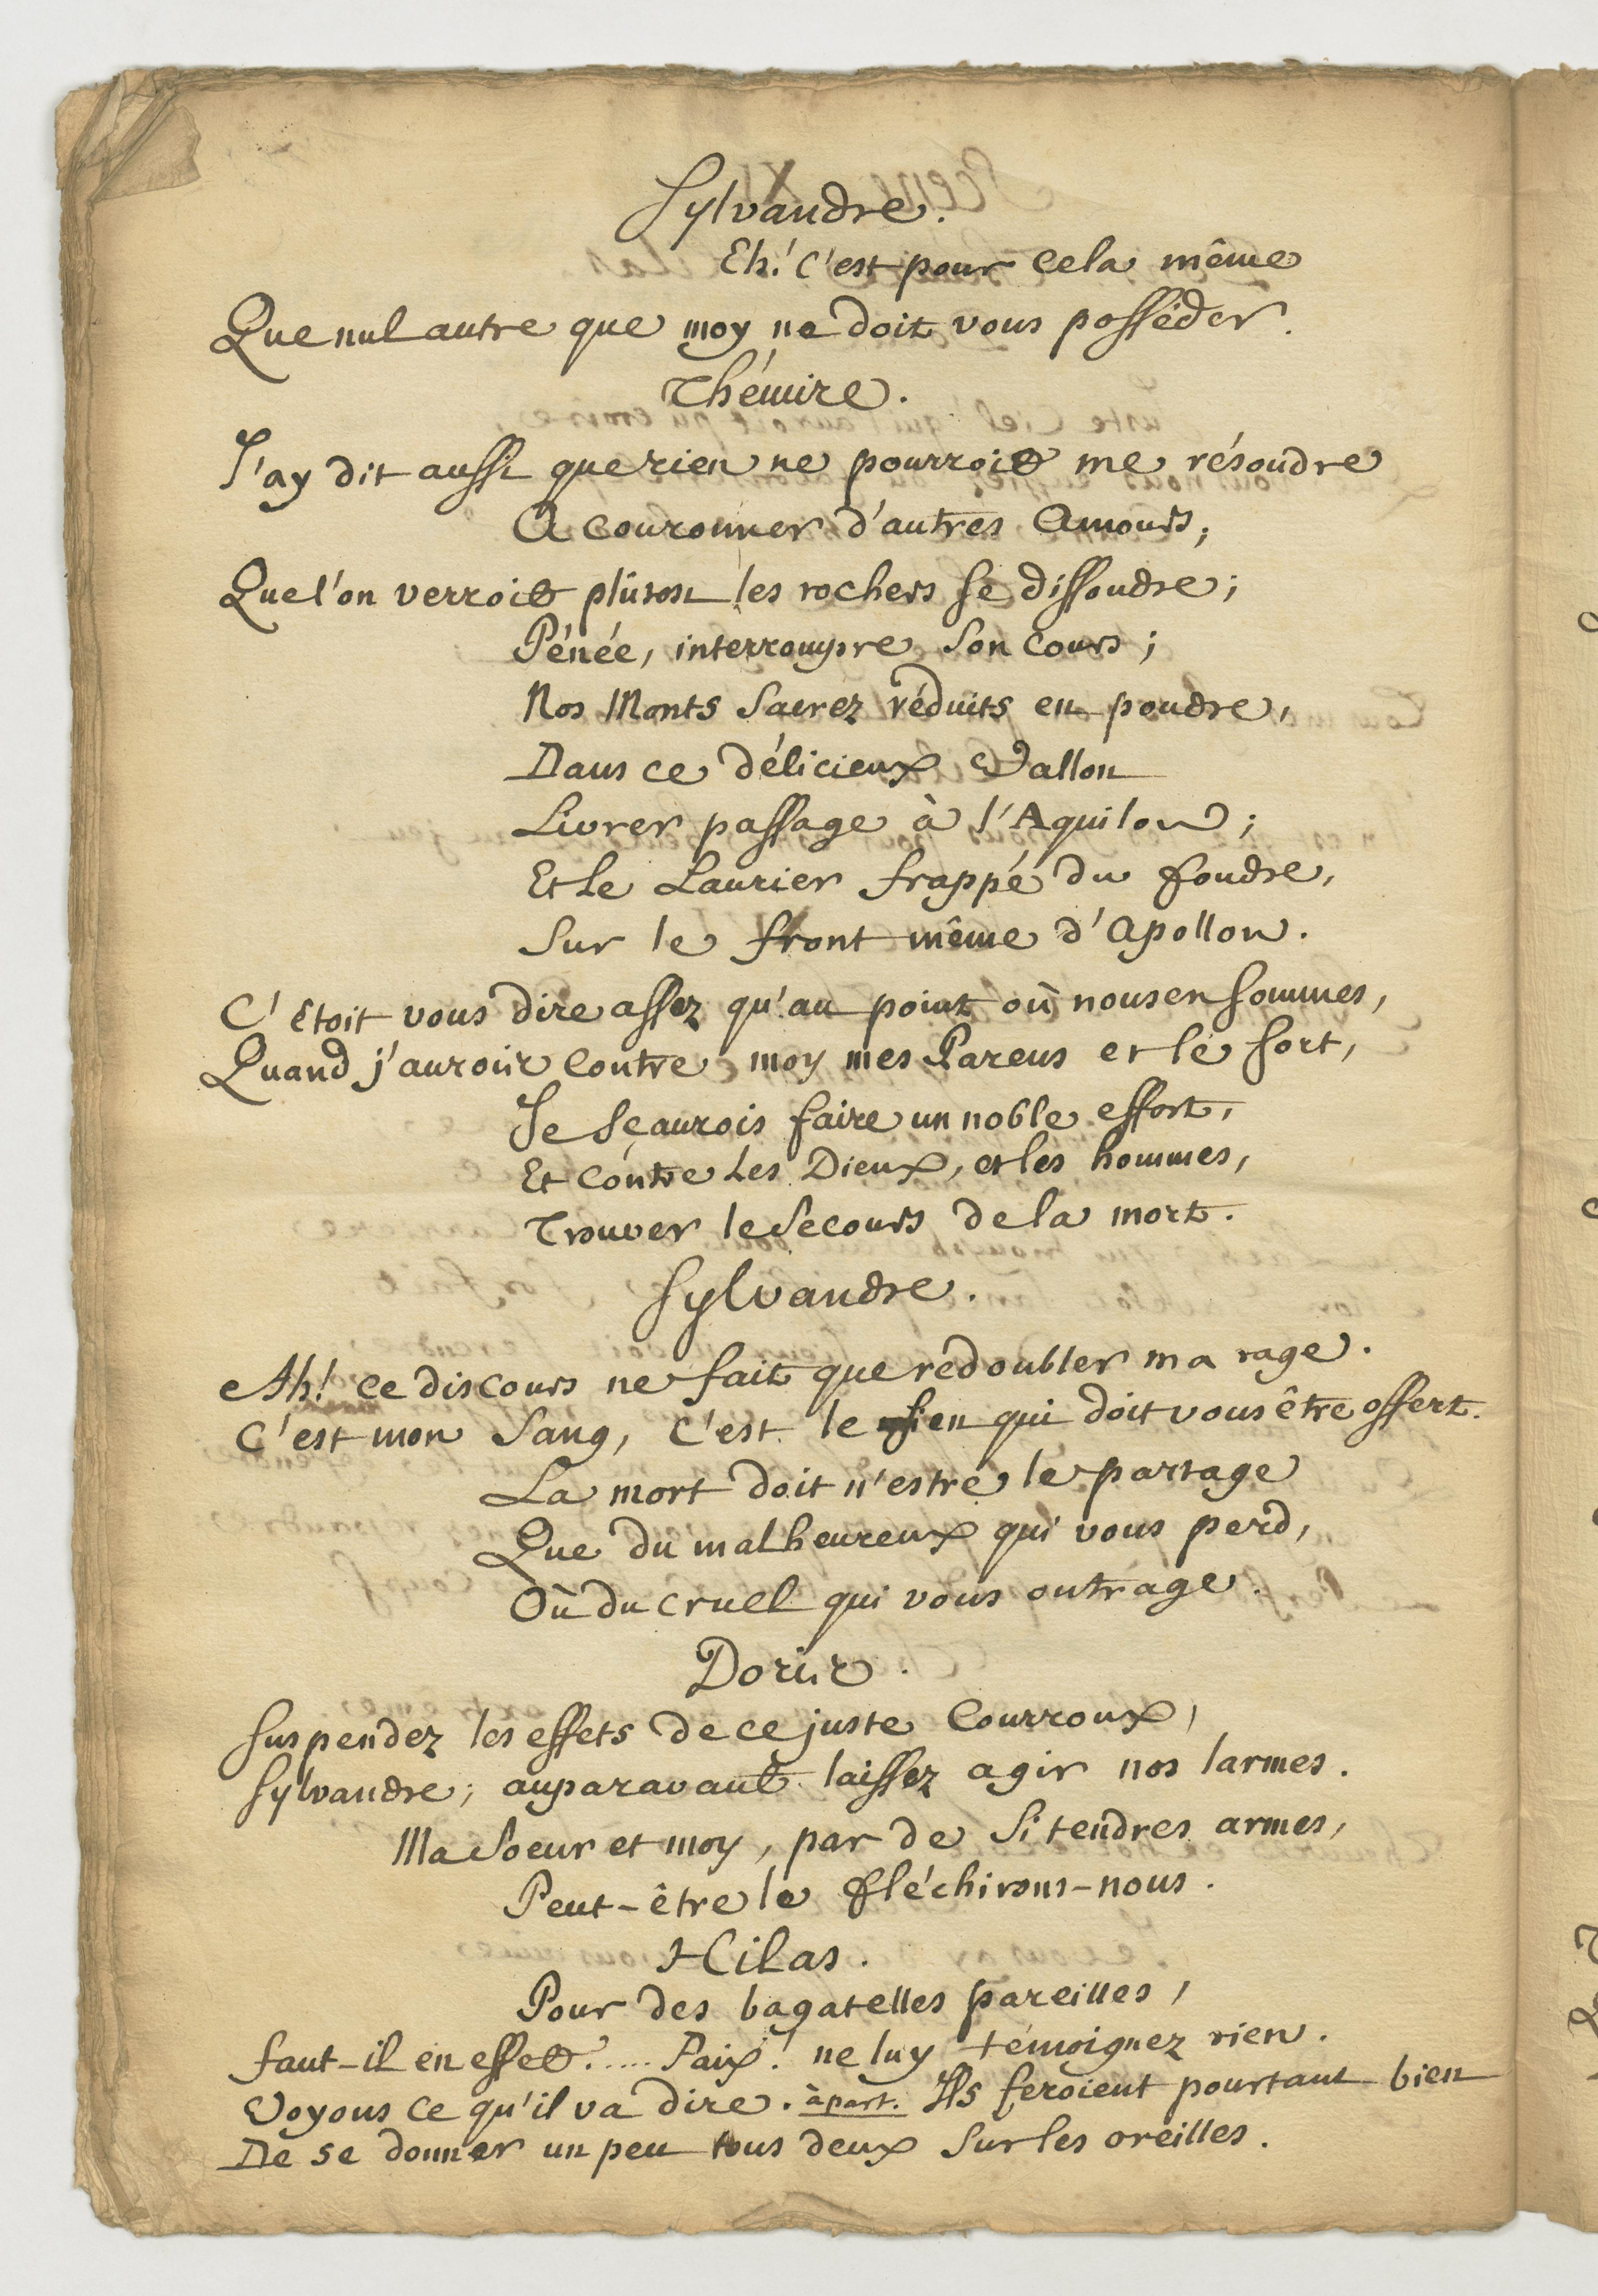 Sylvandre.
Eh! c'est pour cela même
Que nul autre que moy ne doit vous posséder.
Thémire.
J'ay dit aussi que rien ne pourroit me résoudre
A couronner d'autres Amours;
Que l'on verroit plûtost les rochers se dissoudre;
Pénée, interrompre son cours;
Nos Monts sacrez réduits en poudre,
Dans ce délicieux Vallon
Livrer passage à l'Aquilon;
Et le Laurier frappé du foudre,
Sur le front même d'Apollon.
C'étoit vous dire assez qu'au point où nous en sommes,
Quand j'aurois contre moy mes Parens et le sort,
Je sçaurois faire un noble effort,
Et contre les Dieux, et les hommes,
Trouver le secours de la mort.
Sylvandre.
Ah! ce discours ne fait que redoubler ma rage.
C'est mon sang, c'est le sien qui doit vous être offert.
La mort doit n'estre le partage
Que du malheureux qui vous perd,
Où du cruel qui vous outrage.
Doris.
Suspendez les effets de ce juste courroux,
Sylvandre; auparavant laissez agir nos larmes.
Ma soeur et moy, par de si tendres armes,
Peut-être le fléchirons-nous.
Hilas.
Pour des bagatelles pareilles,
faut-il en effet..... Paix! ne luy témoignez rien.
Voyons ce qu'il va dire. à part. Ils feroient pourtant bien
De se donner un peu tous deux sur les oreilles.